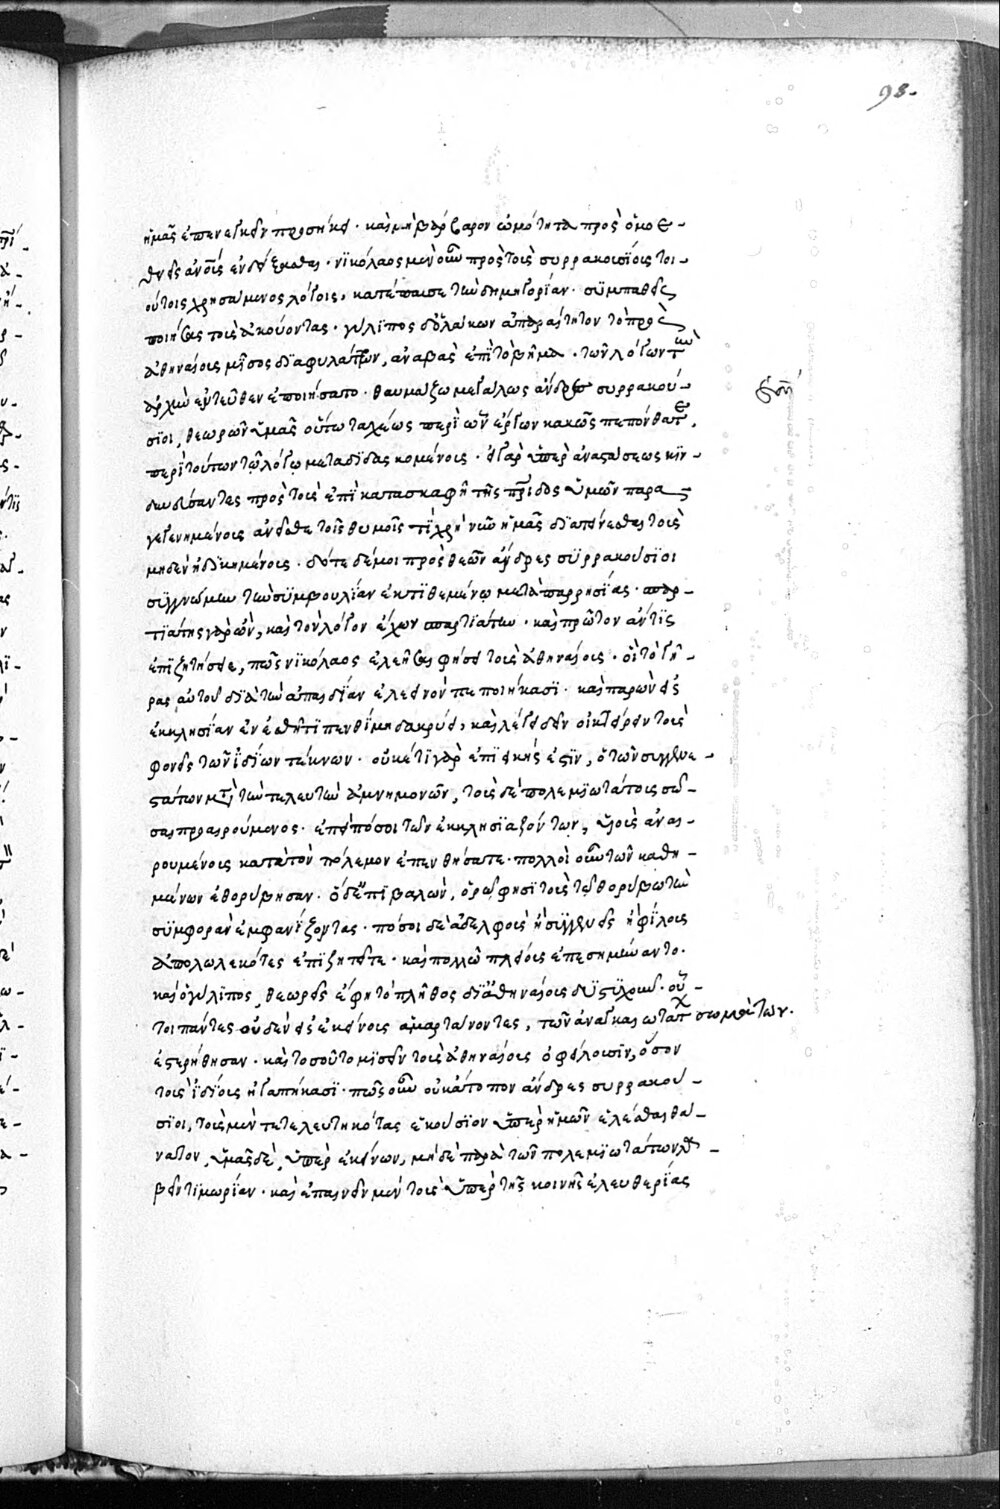 98.
ἡμᾶς ἐπενεγκεῖν προσήκει· καὶ μὴ βάρβαρον ὠμότητα πρὸς ὁμοε-
θνεῖς ἀνοις ἐνδείξασθαι· νικόλαος μὲν οὖν πρὸς τοῖς συρρακοισίοις τοι-
ούτοις χρησάμενος λόγοις, κατέπαυσε τὴν δημηγορίαν· συμπαθεῖς
ποιήσας τοὺς ἀκούοντας· γύλιπος δ' ὁ λάκων ἀπαραίτητον τὸ πρὸς
ἀθηναίους μῖσος διαφυλάττων, ἀναβὰς ἐπὶ τὸ βῆμα· τῶν λόγων τὴν
ἀρχὴν ἐντεῦθεν ἐποιήσατο· θαυμάζω μεγάλως ἄνδρες συρρακού-
σιοι, θεωρῶν ὑμᾶς οὕτω ταχέως περὶ ὧν ἔργων κακῶς πεπόνθατε,
περὶ τούτων τῷ λόγῳ μεταδιδασκομένοις· εἰ γὰρ ὑπὲρ ἀναστάσεως κιν-
δυνεύσαντες πρὸς τοὺς ἐπὶ κατασκαφῇ τῆς πριδος ὑμῶν παρα-
γεγενημένοις ἀνεῖσθε τοῖς θυμοῖς τί χρὴ νῦν ἡμᾶς διατείνεσθαι τοὺς
μηδὲν ἠδικημένοις· δότε δέ μοι πρὸς θεῶν ἄνδρες συρρακούσιοι
συγγνώμην τὴν συμβουλίαν ἐκτιθεμένῳ μετὰ παρρησίας· σπαρ-
τιάτης γὰρ ὢν, καὶ τὸν λόγον ἔχων σπαρτιάτην· καὶ πρῶτον ἄν τις
ἐπιζητήσειε, πῶς νικόλαος ἐλεῆσαι φησὶ τοὺς ἀθηναίοις· οἳ τὸ γῆ-
ρας αὐτοῦ διὰ τὴν ἀπαιδίαν ἐλεεινὸν πεποιήκασι· καὶ παρὼν εἰς
ἐκκλησίαν ἐν ἐσθῆτι πενθίμῃ δακρύει, καὶ λέγει δεῖν οἰκτείρειν τοὺς
φονεῖς τῶν ἰδίων τέκνων· οὐκέτι γὰρ ἐπιεικής ἐστιν, ὁ τῶν συγγενε-
στάτων μετὰ τὴν τελευτὴν ἀμνημονῶν, τοὺς δὲ πολεμιωτάτοις σῶ-
σαι προαιρούμενος· ἐπεὶ πόσοι τῶν ἐκκλησιαζόντων, ὑιοὺς ἀναι-
ρουμένοις κατὰ τὸν πόλεμον ἐπενθήσατε· πολλοὶ οὖν τῶν καθη-
μένων ἐθορύβησαν· ὁ δ' ἐπιβαλὼν, ὁρᾷς φησὶ τοὺς τῷ θορύβῳ τὴν
συμφορὰν ἐμφανίζοντας· πόσοι δὲ ἀδελφοὺς ἢ συγγενεῖς ἢ φίλοις
ἀπολωλεκότες ἐπιζητεῖτε· καὶ πολλῷ πλείοις ἐπεσημῄναντο·
καὶ ὁ γύλιπος, θεωρεῖς ἔφη τὸ πλῆθος δι' ἀθηναίοις δυστυχοῦν· οὗ-
τοι πάντες οὐδὲν εἰς ἐκείνοις ἁμαρτάνοντες, τῶν ἀναγκαιωτάτων σωμάτων.
ἐστερήθησαν· καὶ τοσοῦτο μισεῖν τοὺς ἀθηναίοις ὀφείλουσιν, ὅσον
τοὺς ἰδίοις ἠγαπήκασι· πῶς οὖν οὐκ ἄτοπον ἄνδρες συρρακού-
σιοι, τοὺς μὲν τετελευτηκότας ἑκούσιον ὑπὲρ ἡμῶν ἑλέσθαι θά-
νατον, ὑμᾶς δὲ, ὑπὲρ ἐκείνων, μὴ δὲ παρὰ τῶν πολεμιωτάτων λα-
βεῖν τιμωρίαν· καὶ ἐπαινεῖν μὲν τοὺς ὑπὲρ τῆς κοινῆς ἐλευθερίας